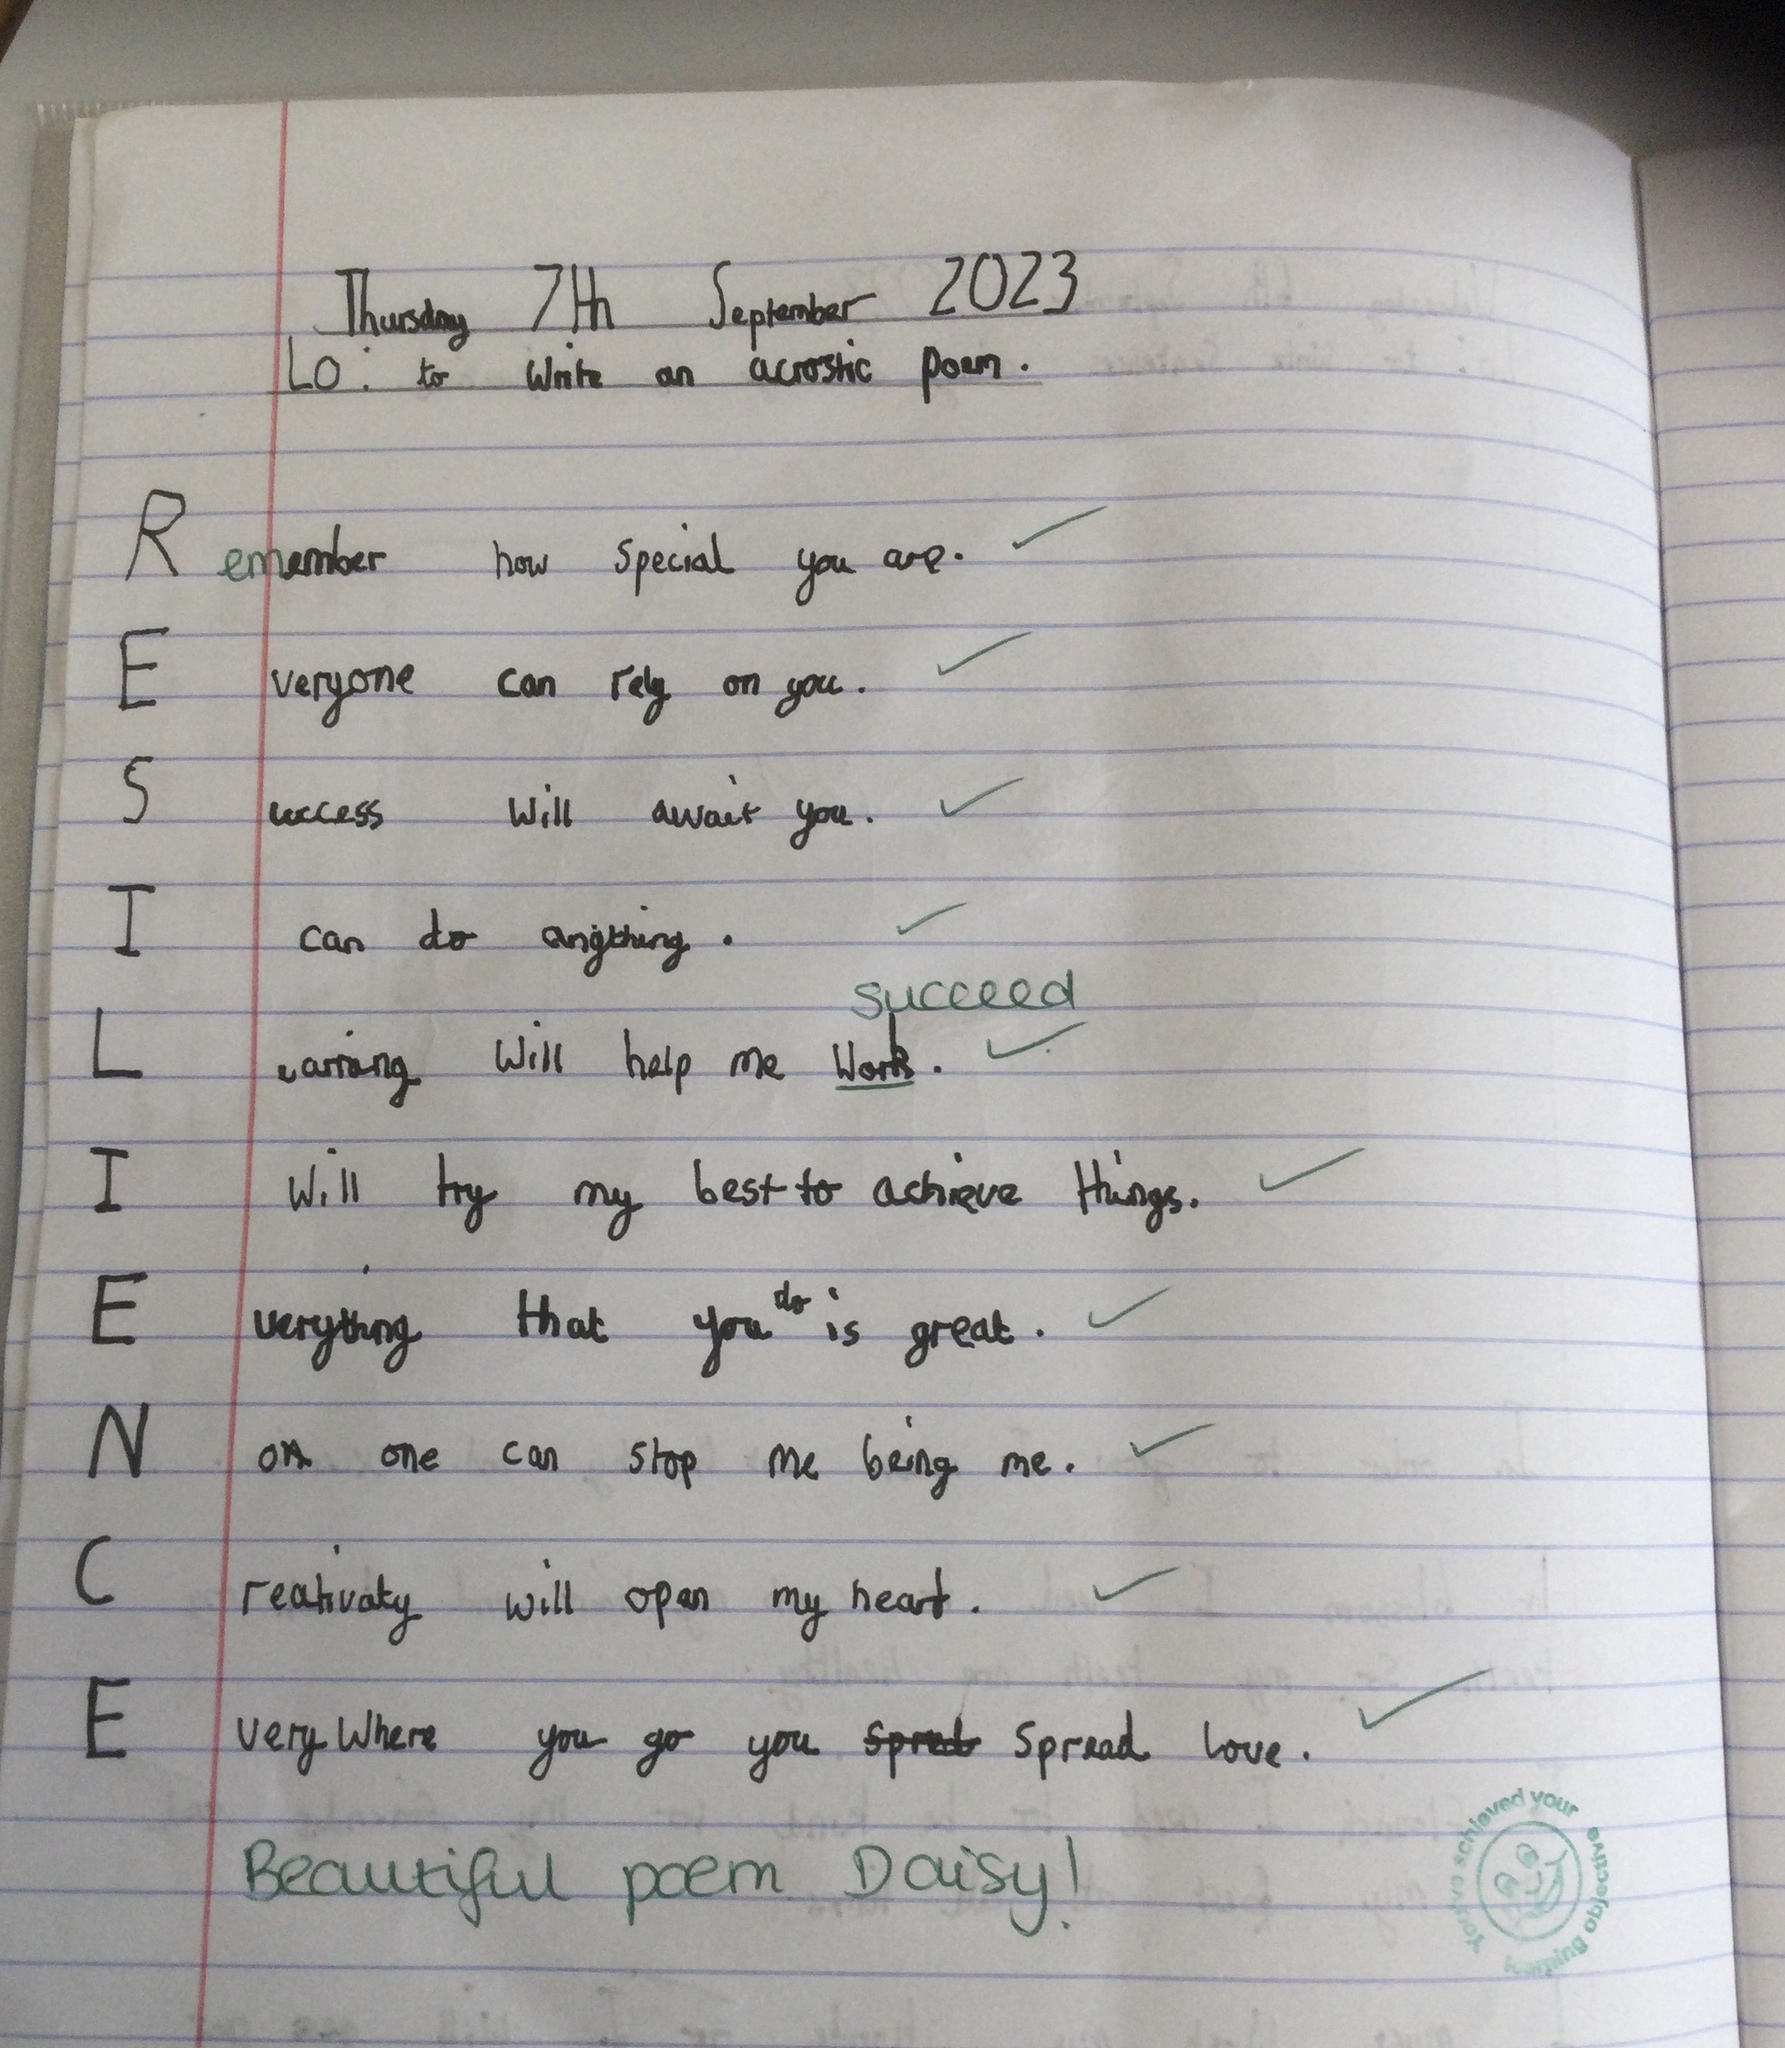 Thursday 7th September 2023
LO: to write an acrostic poem.
Remember how special you are.
Everyone can rely on you.
Success will await you.
I can do anything.
succeed
Learning will help me work.
I will try my best to achieve things.
do
Everything that you is great.
No one can stop me being me.
Creativaty will open my heart.
Every Where you go you spread love.
Beautiful poem Daisy!
You've achieved your learning objective